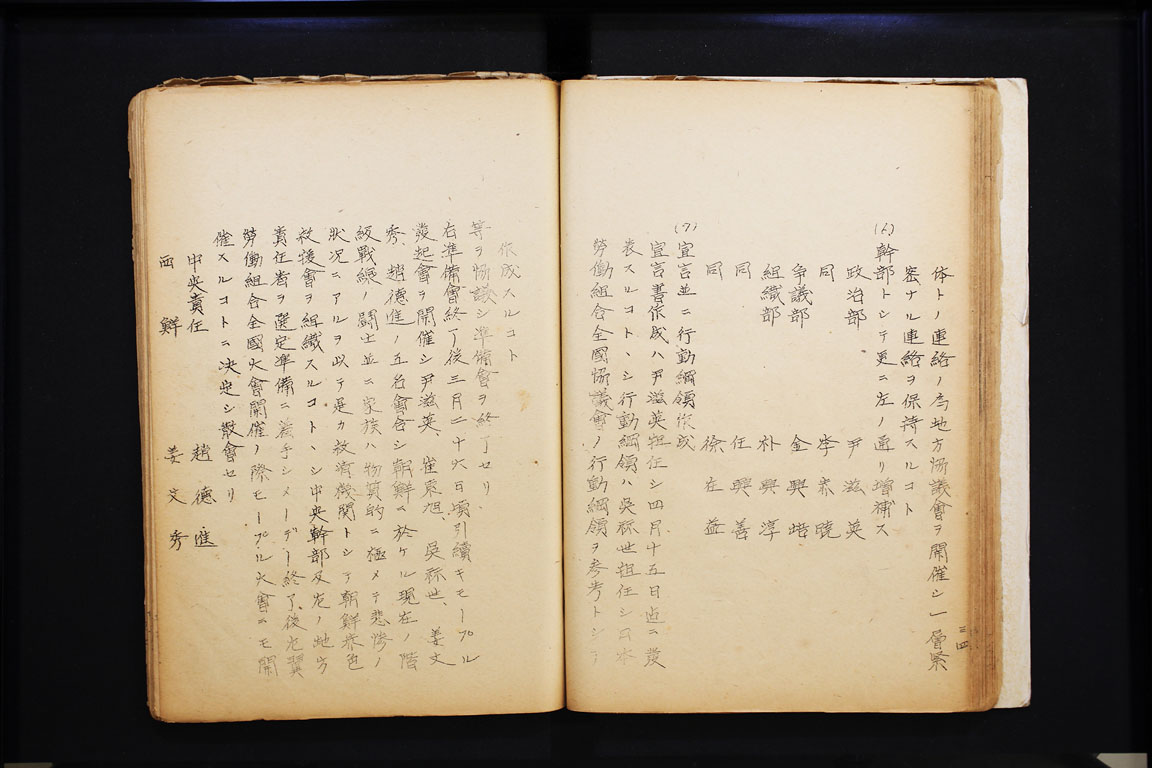 三四
体トノ連絡ノ為地方協議會ヲ開催シ一層緊
密ナル連絡ヲ保持スルコト
幹部トシテ更ニ左ノ通リ增補ス
政治部 尹滋英
同 李
争議部 金興
組織部 朴興淳
同 任興善
同 徐在益
(7)宣言並ニ行動綱領作成
宣言書作成ハ尹滋英担任シ四月十五日迄ニ發
表スルコトヽシ行動綱領ハ吳称世担任シ日本
勞働組合全國協議會ノ行動綱領ヲ参考トシテ
作成スルコト
等ヲ協議シ準備會ヲ終了セリ
右準備會終了後三月二十六日頃引續キモープル
發起會ヲ開催シ尹滋英、崔東旭、吳称世、姜文
秀、趙德進ノ五名會合シ朝鮮ニ於ケル現在ノ階
級戰線ノ闘士並ニ家族ハ物質的ニ極メテ悲惨ノ
狀況ニアルヲ以テ是カ救濟機関トシテ朝鮮赤色
救援會ヲ組織スルコトヽシ中央幹部及左ノ地方
責任者ヲ選定準備ニ着手シメーデー終了後左翼
勞働組合全國大會開催ノ際モープル大會ニモ開
催スルコトニ決定シ散會セリ
中央責任 趙德進
西鮮 姜文秀